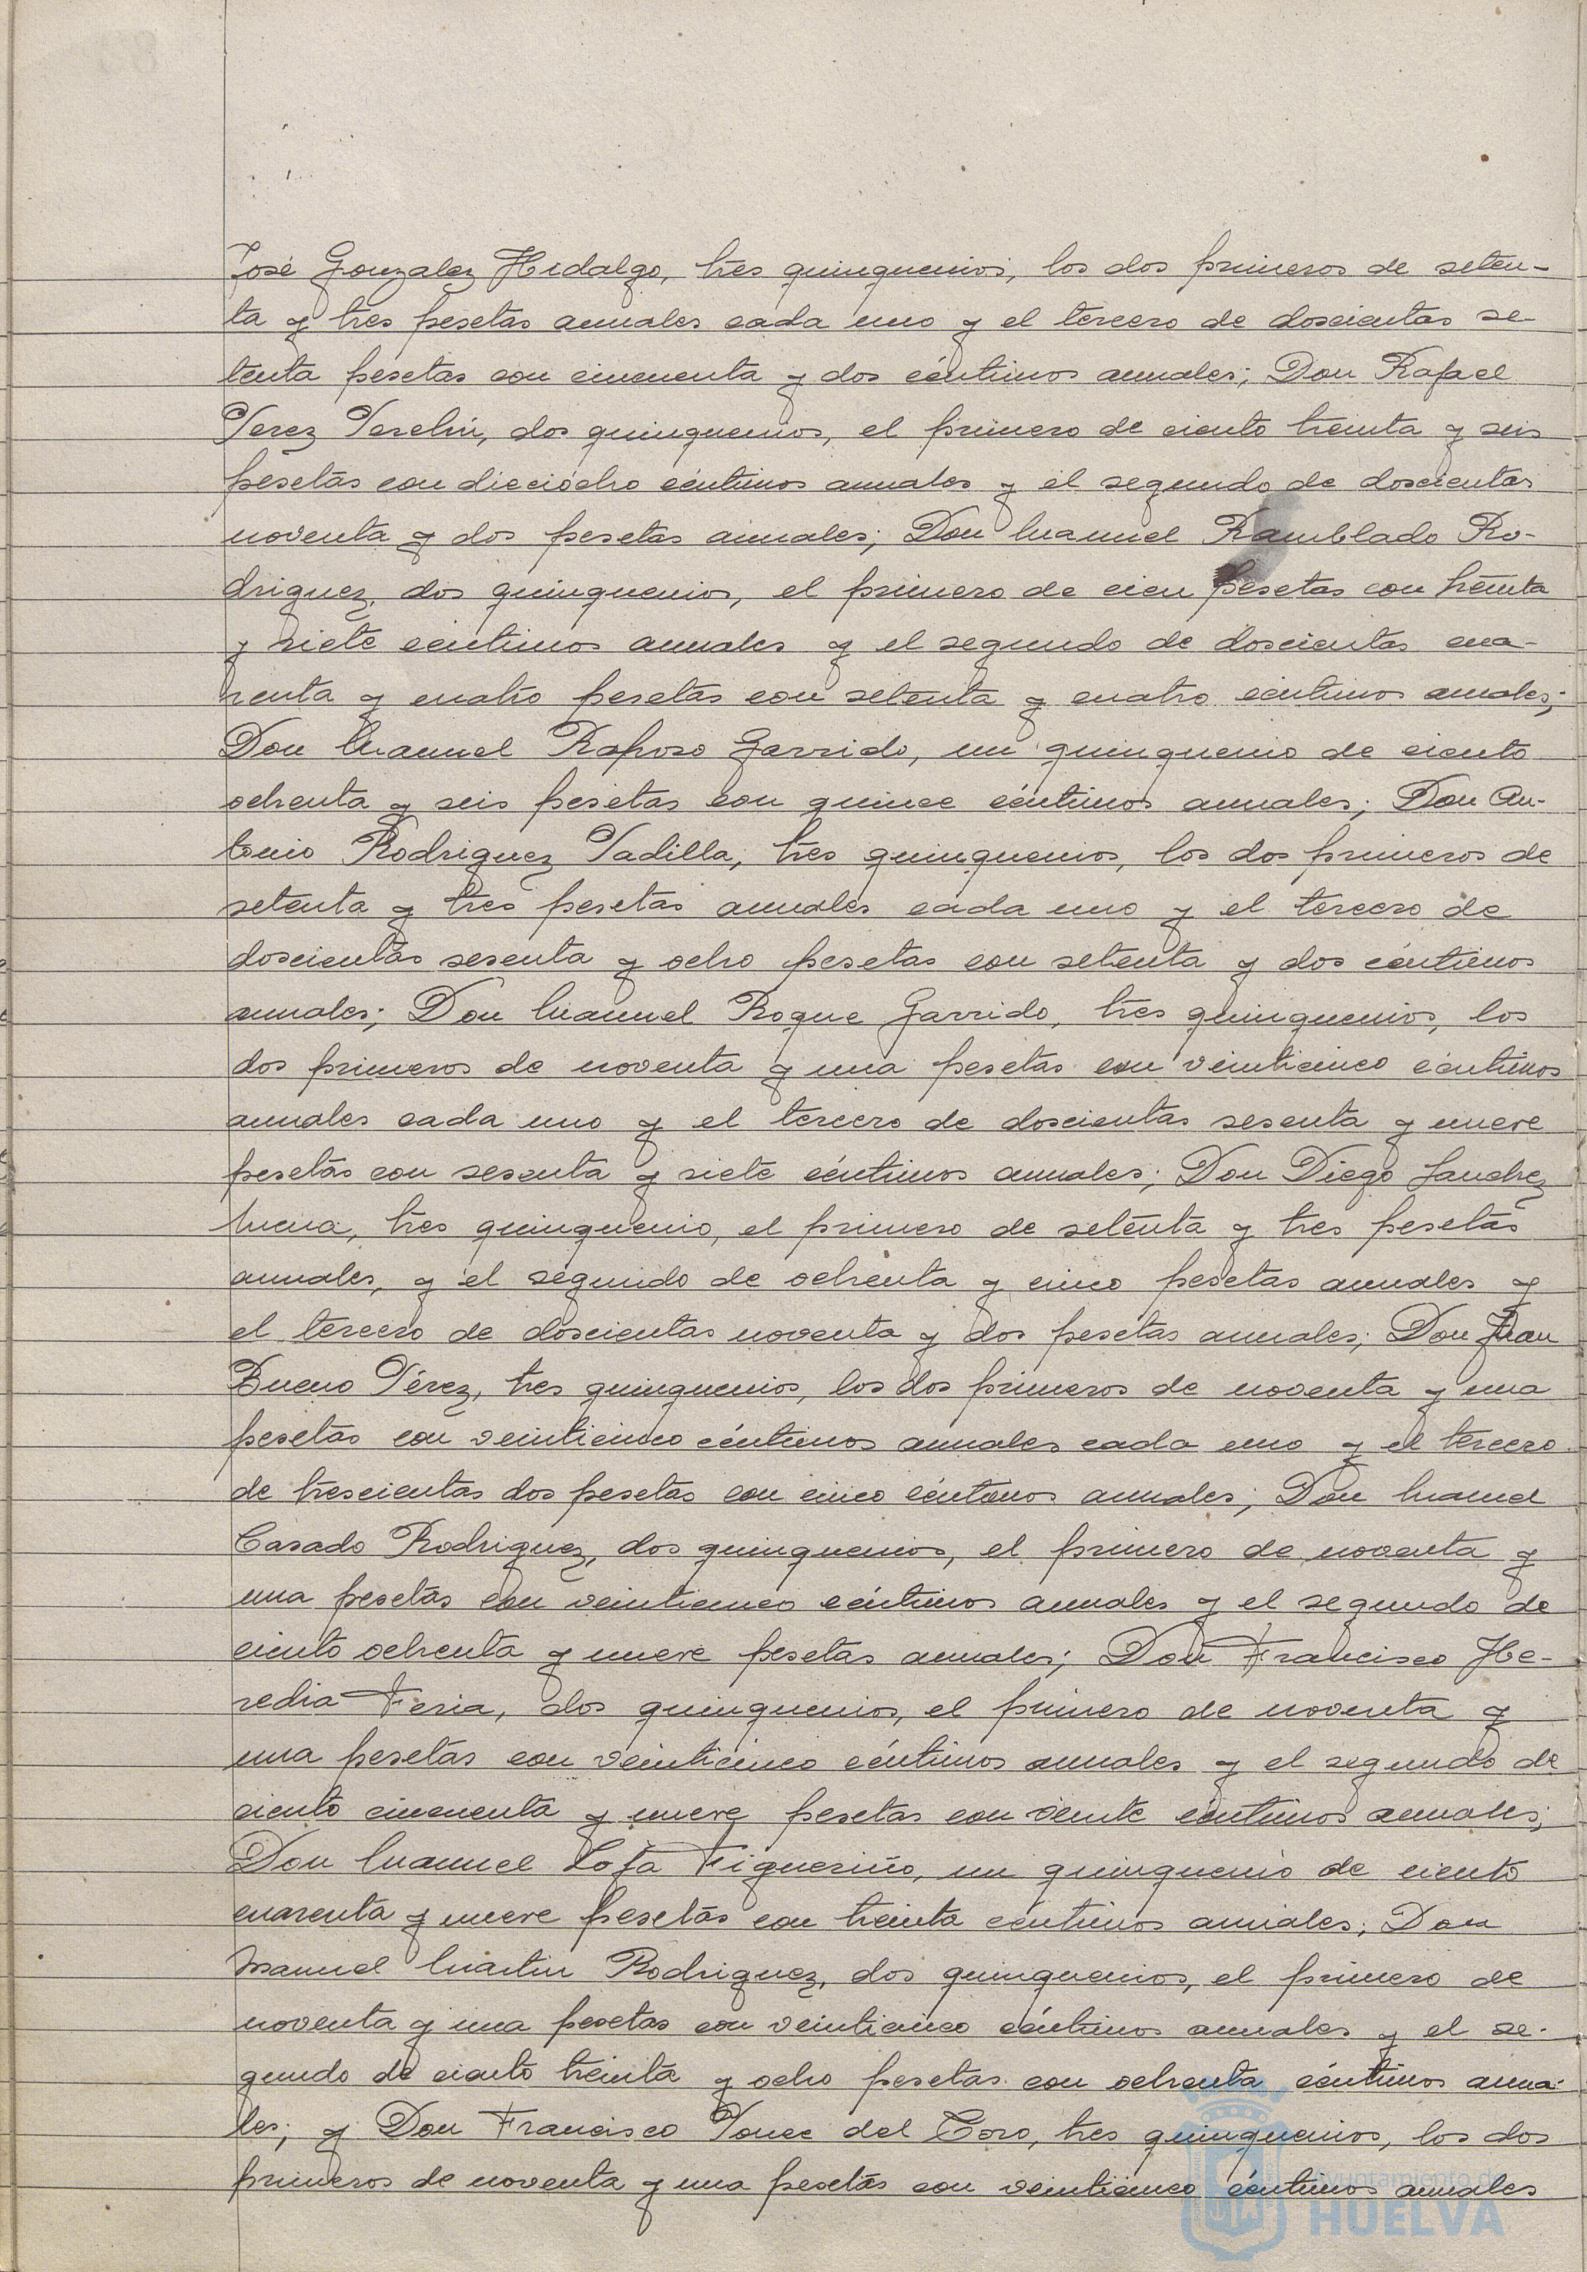 José Gonzalez Hidalgo, tres quinquenios, los dos primeros de seten-
ta y tres pesetas anuales cada uno y el tercero de doscientas se-
tenta pesetas con cincuenta y dos céntimos anuales; Don Rafael
Perez Perelin, dos quinquenios, el primero de ciento treinta y seis
pesetas con dieciócho céntimos anuales y el segundo de doscientas
noventa y dos pesetas anuales; Don Manuel Ramblado Ro-
driguez, dos quinquenios, el primero de cien pesetas con treinta
y siete centimos anuales y el segundo de doscientas cua-
renta y cuatro pesetas con setenta y cuatro céntimos anuales;
Don Manuel Raposo Garrido, un quinquenio de ciento
ochenta y seis pesetas con quince céntimos anuales; Don An-
tonio Rodriguez Padilla, tres quinquenios, los dos primeros de
setenta y tres pesetas anuales cada uno y el tercero de
doscientas sesenta y ocho pesetas con setenta y dos céntimos
anuales; Don Manuel Roque Garrido, tres quinquenios, los
dos primeros de noventa y una pesetas con veinticinco céntimos
anuales cada uno y el tercero de doscientas sesenta y nueve
pesetas con sesenta y siete céntimos anuales; Don Diego Sanchez
Mena, tres quinquenio, el primero de setenta y tres pesetas
anuales, y el segundo de ochenta y cinco pesetas anuales y
el tercero de doscientas noventa y dos pesetas anuales; Don Juan
Bueno Pérez, tres quinquenios, los dos primeros de noventa y una
pesetas con veinticinco céntimos anuales cada uno y el tercero
de trescientas dos pesetas con cinco céntimos anuales; Don Manuel
Casado Rodriguez, dos quinquenios, el primero de noventa y
una pesetas con veinticinco céntimos anuales y el segundo de
ciento ochenta y nueve pesetas anuales; Don Francisco He-
redia Feria, dos quinquenios, el primero de noventa y
una pesetas con veinticinco céntimos anuales y el segundo de
ciento cincuenta y nueve pesetas con veinte céntimos anuales;
Don Manuel Lofa Figueriño, un quinquenio de ciento
cuarenta y nueve pesetas con treinta céntimos anuales; Don
Manuel Martin Rodriguez, dos quinquenios, el primero de
noventa y una pesetas con veinticinco céntimos anuales y el se-
gundo de ciento treinta y ocho pesetas con ochenta céntimos anua-
les; y Don Francisco Ponce del Toro, tres quinquenios, los dos
primeros de noventa y una pesetas con veinticinco céntimos anuales
Ayuntamiento de
HUELVA